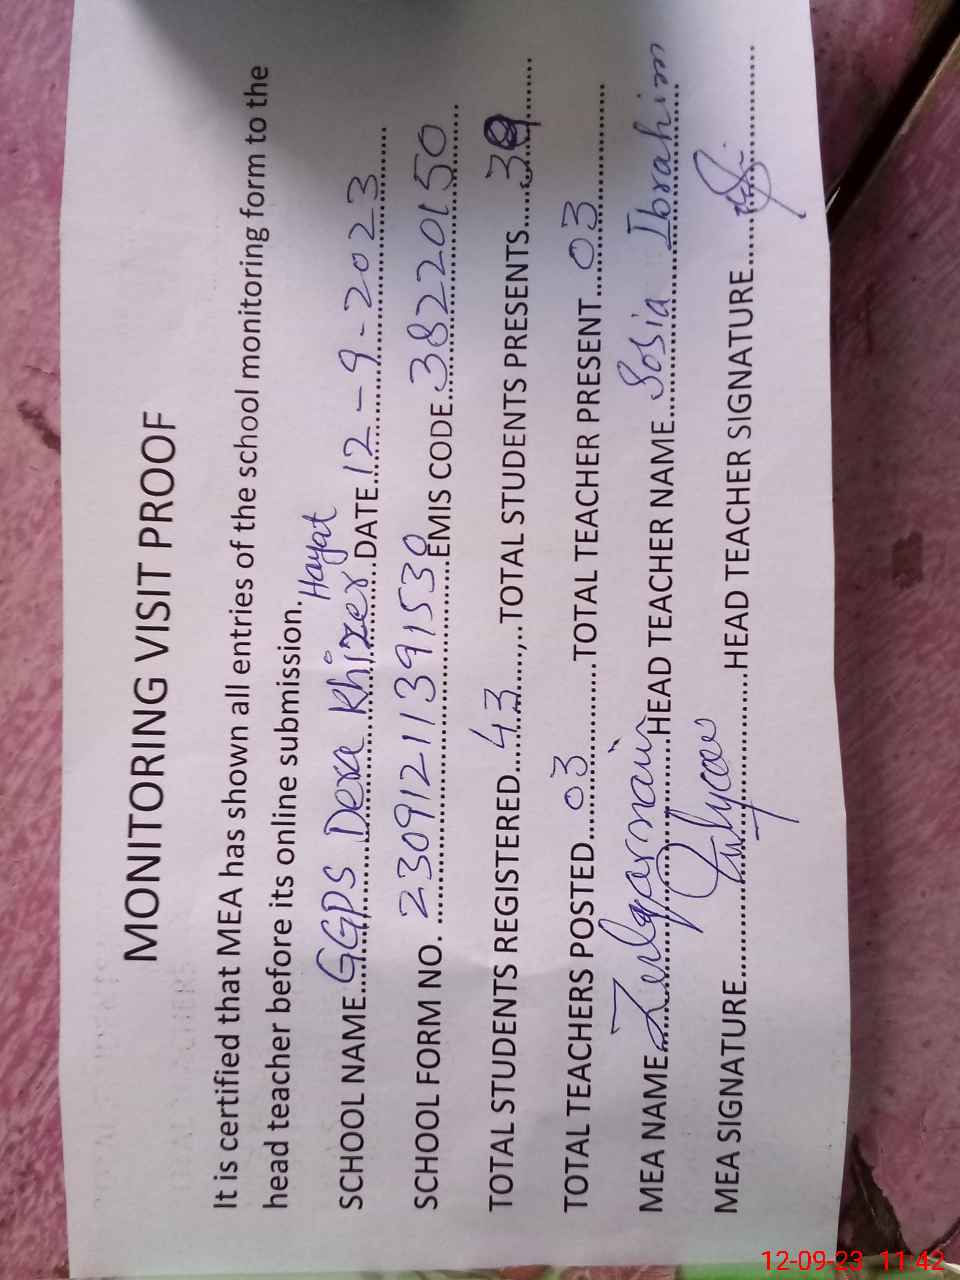 MONITORING VISIT PROOF
It is certified that MEA has shown all entries of the school monitoring form to the
head teacher before its online submission.
SCHOOL NAME GGPS Dera Khizer Hayat DATE 12-9-2023
SCHOOL FORM NO. 23091211391530 EMIS CODE 38220150
TOTAL STUDENTS REGISTERED 43, TOTAL STUDENTS PRESENTS 39
TOTAL TEACHERS POSTED 03 TOTAL TEACHER PRESENT 03
MEA NAME Zulqarnain HEAD TEACHER NAME Sosia Ibrahim
MEA SIGNATURE HEAD TEACHER SIGNATURE
12-09-23 11:42